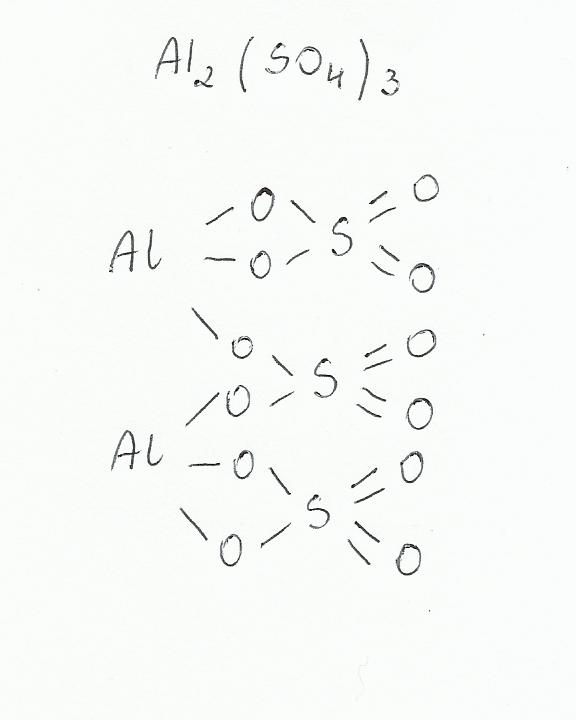 Al₂(SO₄)₃
O O
Al S
O O
O O
S
O O
Al O O
S
O O